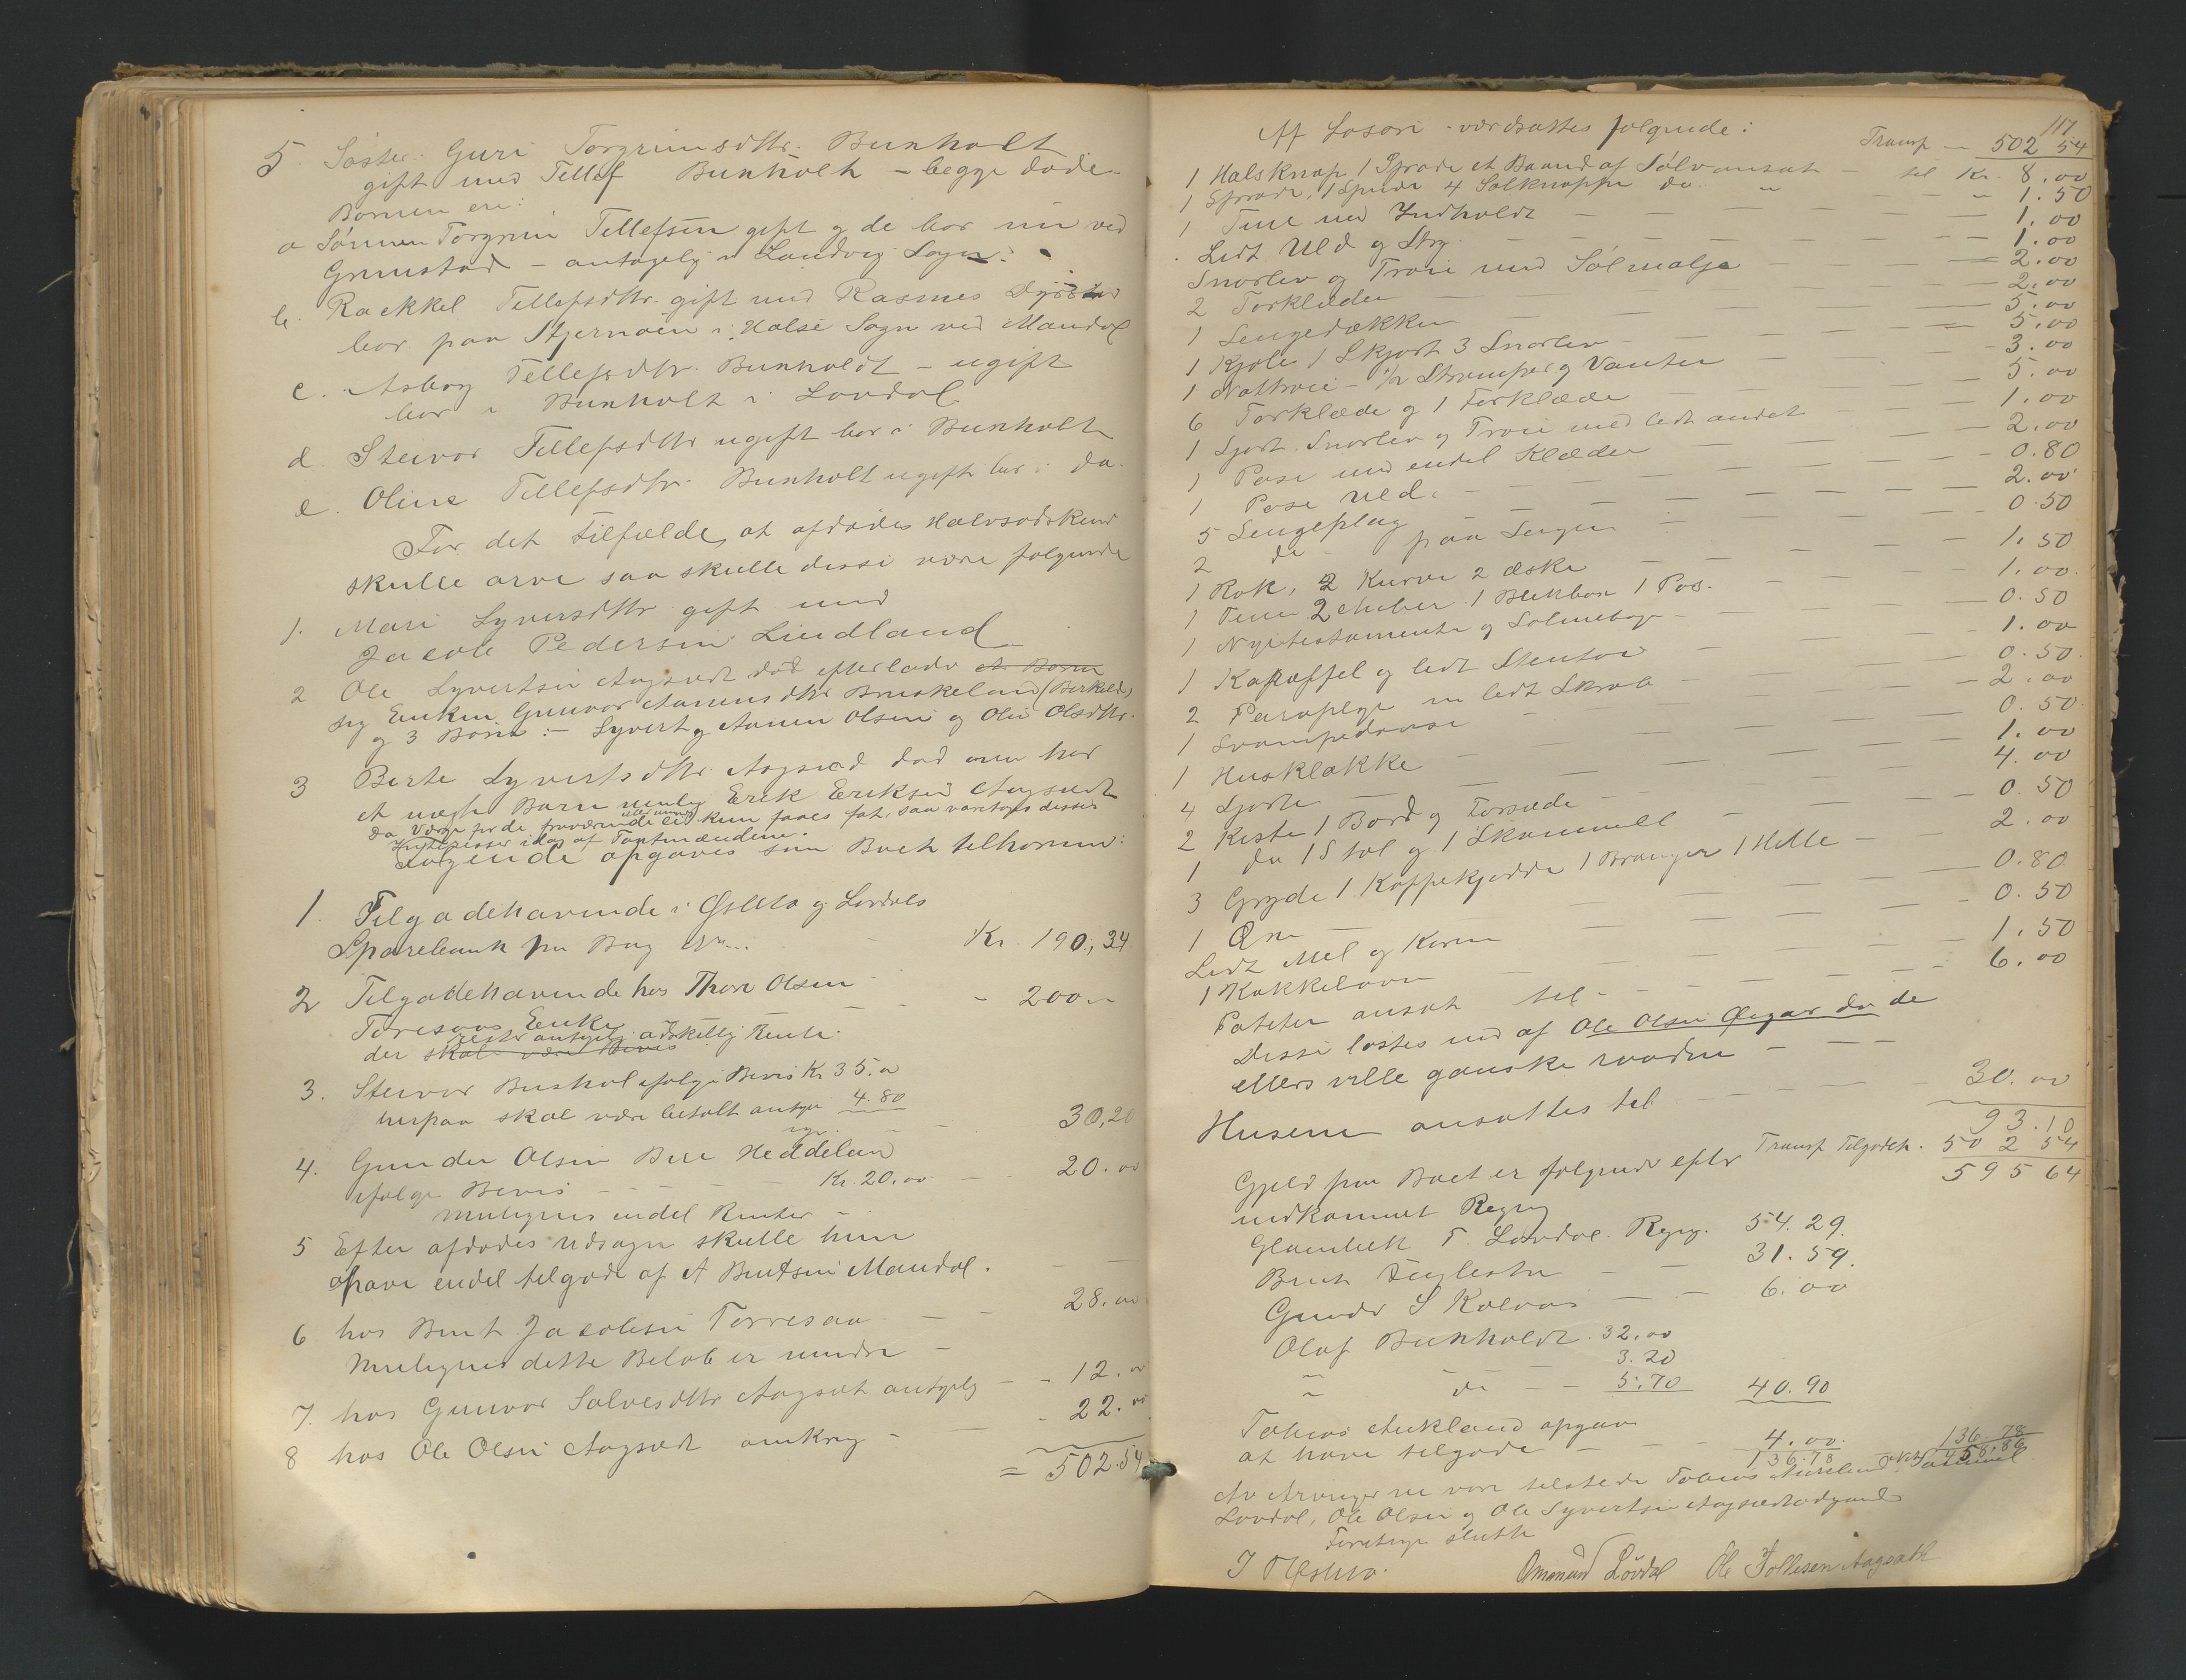 5. Søster: Guri Torgrimsdtr. Bunholt
gift med Tellef Bunholt – begge døde.
Børnene ere:
a Sønnen Torgrim Tellefsen gift og de bor nu ved
Grimstad – antagelig i Landvig Sogn.
b. Rackkel Tellefsdtr. gift med Rasmus
bor paa Stjernøen i Halse Sogn ved Mandal
c. Asborg Tellefsdtr. Bunholdt – ugift
bor i Bunholt i Løvdal
d. Steivor Tellefsdtr ugift bor i Bunholt
e. Oline Tellefsdtr. Bunholt ugift bor i do.
For det tilfælde, at afdødes Halvsødskend
skulle arve saa skulle disse være følgende
1. Mari Syversdtr gift med
Jacob Pedersen Lindland
2 Ole Syvertsen Aagsæt død efterlader et Børn
sig Enken Gunvor Aanensdtr Bruskeland (Birkeld)
og 3 Børn: – Syvert og Aanen Olsen og Olene Olsdtr.
3 Berte Syvertsdtr. Aagsæd død men har
et uægte Barn nemlig Erik Eriksen Aagsædt
da Værge for de fraværende ei kun faaes fat, saa varetages disses
Interesser idag af Tastmændene.
Følgende opgaves som Boet tilkommen:
1. Tilgodehavende i Øslebø og Løvdals
Sparebank paa Bog No... Kr. 190,34
2 Tilgodehavende hos Thore Olsen
Toresaas Enke – – - 200 –
rester antagelig adskillig Rente.
der skal være Bevis
3. Steivor Bunhol ifølge Bevis Kr 35.00
herpaa skal være betalt antage 4.80
– – 30,20
4. Gunder Olsen Bue Heddeland
ifølge Bevis – – – Kr. 20.00 – - 20.00
muligens endel Renter –
5 Efter afdødes Udsagn skulle hun
have endel tilgode af A Bentsen Mandal. – –
6 hos Bent Jacobsen Torresaa – – 28.00
muligens dette Beløb er mindre –
7. hos Gunvor Salvesdtr Aagsæt antagelig – - 12.00
8 hos Ole Olsen Aagsædt omkring – - 22.00
= 502.54
117
Af Løsøre værdsattes følgende:
Transp — 502 54
1 Halsknap 1 Sprøde et Baand af Sølv ansat – til Kr. 8.00
1 Sprøde, 1 Spende 4 Sølknappe do. " " 1.50
1 Tine med Indholdt – – – 1.00
Lidt Uld og Stry. – – – 1.00
Snorliv og Trøie med Sølmalje – – 2.00
2 Tørklæder – – – 2.00
1 Sengedækken – – – 5.00
1 Kjole 1 Skjørt 3 Snorliv – – 5.00
1 Nattrøie – 1/2 Strømper og Vanter – 3.00
6 Tørklæde og 1 Forklæde – – 5.00
1 Sjørt, Snorliv og Trøie med lidt andet – 1.00
1 Pose med endel Klæder – – 2.00
1 Pose Uld. – – – 0.80
5 Sengeplag – – – 2.00
2 do paa Sengen – – 0.50
1 Rok, 2 Kurve 2 æske – – 1.50
1 Tine 2 Amber 1 Blikbox 1 Pos. – 1.00
1 Nyetestamente og Salmebog – – 0.50
1 Kasteffel og lidt Stentøi – – 1.00
2 Paraplye m lidt Skrab – – 0.50
1 Svampedaase – – – 2.00
1 Husklokke – – – 0.50
4 Sjørte – – – 1.00
2 Kister 1 Bord og Forsæde – – 4.00
1 do 1 Stol og 1 Skammell – – 0.50
3 Gryde 1 Kaffekjedde 1 Brander 1 Helle – 2.00
1 Øxe – – – 0.80
Lidt Mel og Korn – – 0.50
1 Kakkelovn – – – 1.50
Poteter ansat til – – – 6.00
Disse løstes ind af Ole Olsen Øigar da de
ellers ville ganske raadne – – –
Husene ansattes til – – – 30.00
93.10
Transp Tilgodeh. 502 54
595 64
Gjeld paa Boet er følgende efter
indkommet Regng
T. Løvdal. Regng. 54.29.
Bent – – 31.59.
Gunder S Kolaas – – 6.00
Olaf Bunholdt 32.00
3.20
" do – – 5.70 40.90
Tobias Aukland opgav
at have tilgode – – – 4.00.
136.78
136 78
458.86
Av Arvingerne vare tilstede Tobias Aukland, Samuel
Løvdal, Ole Olsen og Ole Syvertsen Aagsædt
Forretnge slutte
Omund Løvdal Ole Tollefsen Aagsæth